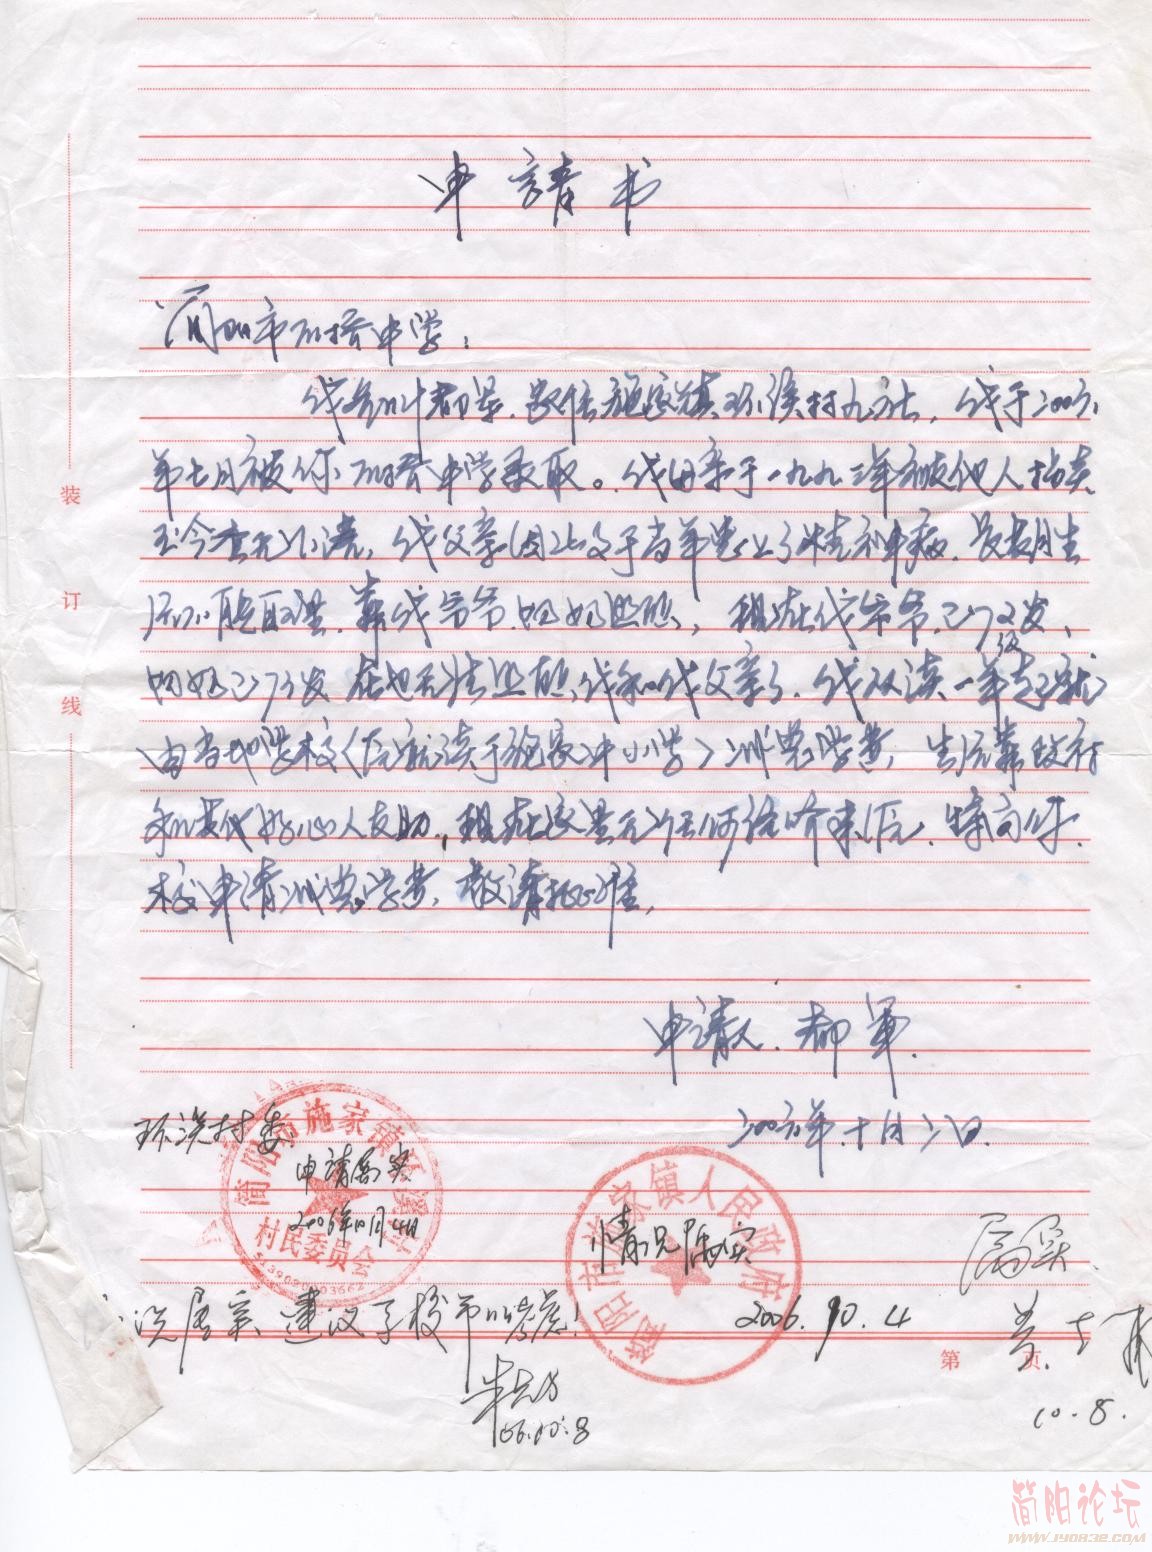 申請书
简阳市石桥中学：
我名叫都军，家住施家镇环溪村九社，我于二00六
年七月被你石桥中学录取。我母亲于一九九二年被他人拐卖
至今杳无音讯，我父亲因此于当年患上了精神病，长期生
活不能自理，靠我爷爷、奶奶照顾，现在我爷爷已72岁、
奶奶已73岁，在也无法照顾我和我父亲了，我从读一年级起就
由当地学校（原就读于施家中小学）减免学费，生活靠政府
和其他好心人友助，现在家里无任何经济来源，特向你
校申请减免学费，敬请批准，
申请人：都军
二00六年十月二日
环溪村委
申请属实
2006年10月4日
简阳市施家镇环溪村
村民委员会
情况属实
简阳市施家镇人民政府
2006.10.4
属实
情况属实，建议学校予以考虑！
06.10.8
10.8.
装
订
线
第 页
简阳论坛
www.JY0832.com